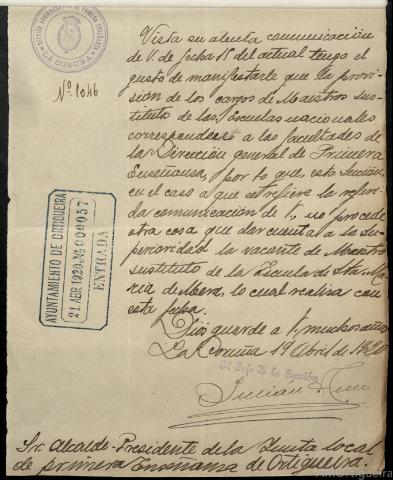 SECCIÓN ADMINISTRATIVA DE PRIMERA ENSEÑANZA
LA CORUÑA
Nº 1046
Vista su atenta comunicación
de V. de fecha 15 del actual tengo el
gusto de manifestarle que la provi-
sión de los cargos de Maestros sus-
titutos de las Escuelas nacionales
corresponden a las facultades de
la Dirección general de Primera
Enseñanza, por lo que, esta Sección,
en el caso a que se refiere la referi-
da comunicación de V. no procede
otra cosa que dar cuenta a la Su-
perioridad la vacante de Maestro
sustituto de la Escuela de Sta. Ma-
ría de Mera, lo cual realiza con
esta fecha.
Dios guarde a V. muchos años
La Coruña 19 Abril de 1920
El Jefe de la Sección
Julián
AYUNTAMIENTO DE ORTIGUEIRA
21 ABR 1920 Nº 000057
ENTRADA
Sr. Alcalde-Presidente de la Junta local
de primera Enseñanza de Ortigueira.